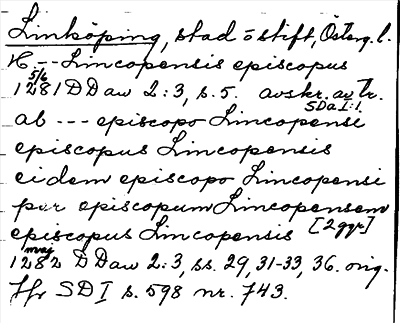 Linköping, stad o stift, Österg. l.
H. -- Lincopensis episcopus
5/6
1281 DDaw 2:3, s. 5. avskr. av tr.
SDa I:1.
ab --- episcopo Lincopensi
episcopus Lincopensis
eidem episcopo Lincopensi
per episcopum Lincopensem
episcopus Lincopensis [2 ggr]
maj
1282 DDaw 2:3, ss. 29, 31-33, 36. orig.
Jfr SD I s. 598 nr. 743.